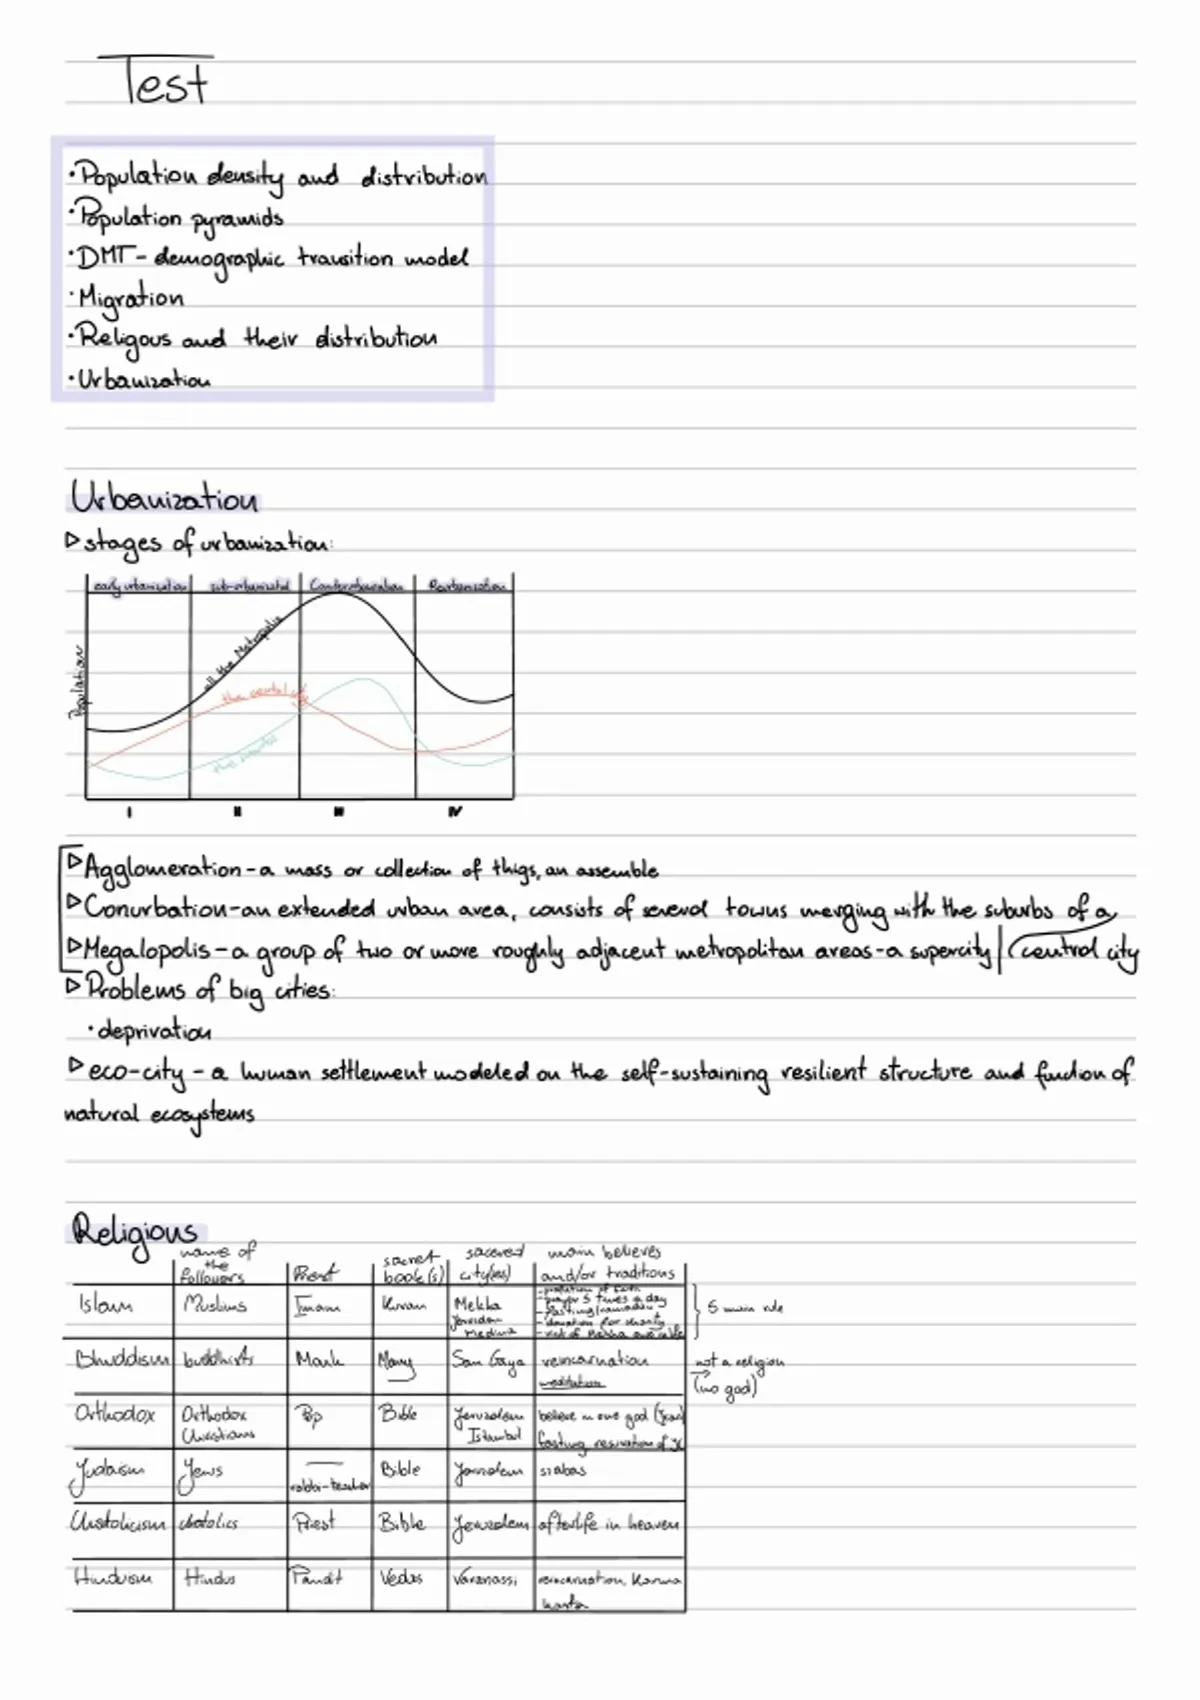 Test
·Population density and distribution
·Population pyramids
·DMT - demographic transition model
·Migration
·Religous and their distribution
·Urbanization
Urbanization
▷ stages of urbanization:
early urbanization sub-urbanizated Counterurbanization Reurbanization
Population
all the Metropolis
the central city
the suburbs
I II III IV
▷ Agglomeration - a mass or collection of thigs, an assemble
▷ Conurbation - an extended urban area, consists of several towns merging with the suburbs of a
central city
▷ Megalopolis - a group of two or more roughly adjacent metropolitan areas - a supercity
▷ Problems of big cities:
· deprivation
▷ eco-city - a human settlement modeled on the self-sustaining resilient structure and fuction of
natural ecosystems
Religious
name of the followers Priest sacret book(s) sacered city(ies) main believes and/or traditions
Islam Muslims Imam Kuran Mekka Medina
prayer 5 times a day
- fasting/ramadan
- donation for charity
5 main rule
Bhuddism buddhists Monk Many Gaya reincarnation meditation
not a religion
(no god)
Orthodox Orthodox Christians Pop Bible Jeruzalem Istanbul believe in one god
fasting
Judaism Jews — rabbi-teacher Bible Jeruzalem szabas
chatolics Priest Bible Jeruzalem afterlife in heaven
Hinduism Hindus Pandit Vedas Varanassi reincarnation, Karma